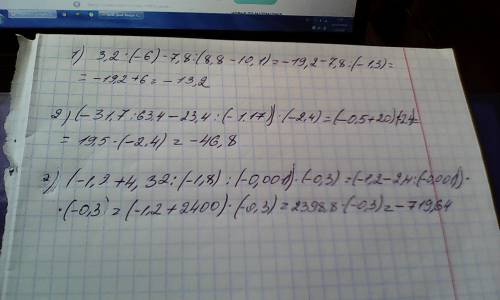 1) 3,2·(-6)-7,8:(8,8-10,1)=-19,2-7,8:(-1,3)=
=-19,2+6=-13,2
2) (-31,7:63,4-23,4:(-1,17))·(-2,4)=(-0,5+20)·(-2,4)=
=19,5·(-2,4)=-46,8
3) (-1,2+4,32:(-1,8):(-0,001))·(-0,3)=(-1,2-2,4:(-0,001))·
·(-0,3)=(-1,2+2400)·(-0,3)=2398,8·(-0,3)=-719,64